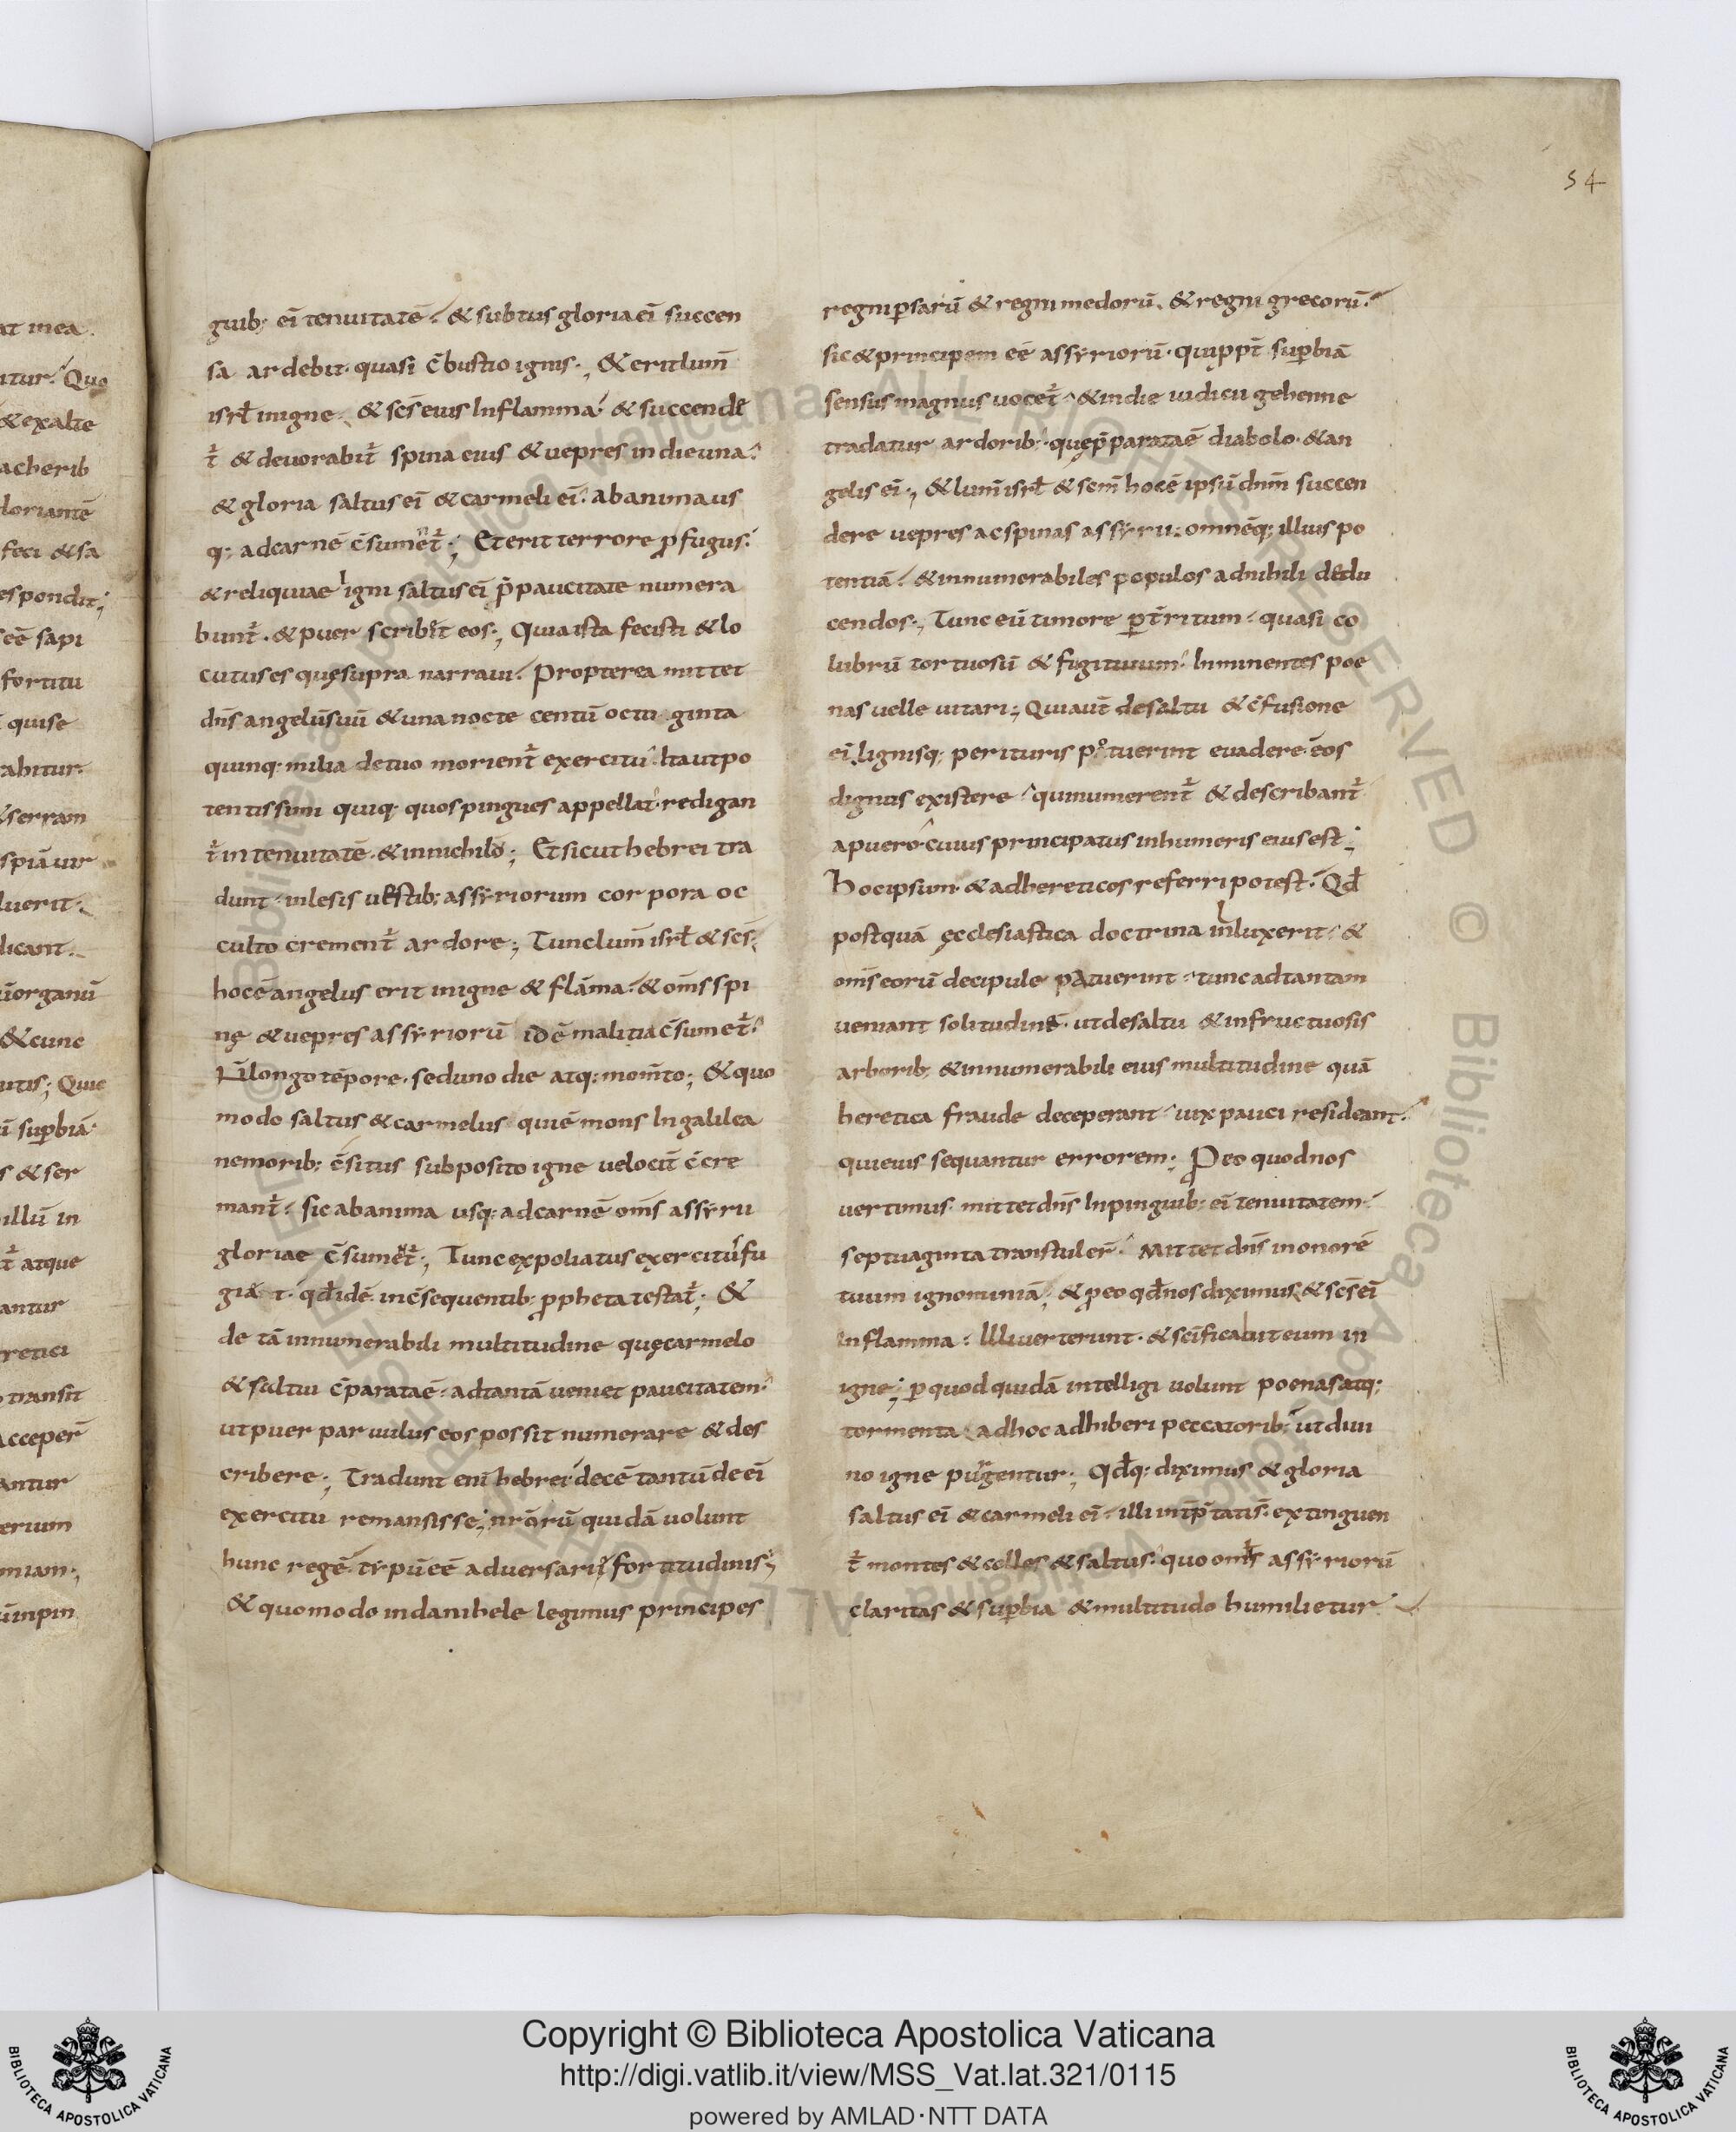 54
guib; ei᷒ tenuitatē. & subtus gloria ei᷒ succen
sa ardebit. quasi c̄bustio ignis; & erit lum̄
isrl̄ inigne. & scs̄ eius inflamma. & succendē
t̄ & devorabit̄ spina eius & uepres in die una.
& gloria saltus ei᷒ & carmeli ei᷒. ab anima us
q; ad carnē c̄sumet̄; Et erit terrore profugus.
& reliquiae ligni saltus ei᷒ p̄ paucitate numera
bunt̄. & puer scribet eos; Quia ista fecisti & lo
cutus es quę supra narraui. Propterea mittet
dn̄s angelū suū & una nocte centū octuaginta
quinq; milia de tuo morient̄ exercitu. Ita ut po
tentissimi quiq; quos pingues appellat redigan
t̄ in tenuitatē. & in nichilō; Et sicut hebrei tra
dunt. inlesis uestib; assyriorum corpora oc
culto cremenT̄ ardore; Tunc lum̄ isrl̄ & scs̄
hoc ē angelus erit inigne & flāma. & omīs spi
nę & uepres assyriorū id ē malitia c̄sumet̄.
N̄ longo tēpore. sed uno die atq; mom̄to; & quo
modo saltus & carmelus qui ē mons In galilea
nemorib; c̄situs subposito igne velocit̄ c̄cre
mant̄. sic ab anima usq; ad carnē omīs assyrii
gloriae c̄sumet̄; Tunc expoliatus exercitu fu
giā t. qd̄ idē in c̄sequentib; ppheta testat̄; &
de tā innumerabili multitudine quę carmelo
& saltui c̄parata ē. ad tantā veniet paucitatem.
ut puer parvulus eos possit numerare & des
cribere; Tradunt enī hebrei decē tantū de ei᷒
exercitu remansisse; nr̄orū quidā uolunt
hunc regē typū eē adversarii fortitudinis;
& quomodo in danihele legimus principes
regni p̱sarū & regni medorū. & regni grecorū.
sic & principem eē assyriorū. qui ppt̄ suꝑbiā
sensus magnus uocet̄. & in die iudicii gehenne
tradatur ardorib; quę p̄parata ē diabolo. & an
gelis ei᷒; & lum̄ isrl̄ & sem̄ hoc ē ipsū dn̄m succen
dere uepres ac spinas assyrii. omnēq; illius po
tentiā. & innumerabiles populos ad nihili dedu
cendos; Tunc eū timore ꝑt̄ritum. quasi co
lubrū tortuosū & fugitiuum. Inminentes poe
nas uelle uitari; Qui aut̄ de saltu & c̄fusione
ei᷒ lignisq; perituris potuerint euadere. eos
dignus existere. qui numerent̄ & describant̄
a puero. cuius principatus in humeris eius est;
Hoc ipsum & ad hereticos referri potest. Qd̄
postquā ęcclesiastica doctrina inluxerit. &
omīs eorū decipule patuerint. tunc ad tantam
ueniant solitudinē. ut de saltu & infructuosis
arborib; & innumerabili eius multitudine quā
heretica fraude deceperant. uix pauci resideant.
qui eius sequantur errorem; Pro eo quod nos
uertimus. mittet dn̄s In pinguib; ei᷒ tenuitatem.
septuaginta transtuler̄. Mittet dn̄s in onorē
tuum ignominiā, & pro eo qd̄ nos diximus & scs̄ ei᷒
In flamma. Illi uerterunt. & scīficabit eum in
igne; ꝑ quod quidā intelligi uolunt poenas atq;
tormenta ad hoc adhiberi peccatorib; ut diui
no igne purgentur; Qd̄q; diximus & gloria
saltus ei᷒ & carmeli ei᷒. illi int̄p̄tati s̄. extinguen
t̄ montes & colles & saltus. quo omīs assyriorū
claritas & suꝑbia & multitudo humilietur.
Copyright © Biblioteca Apostolica Vaticana
http://digi.vatlib.it/view/MSS_Vat.lat.321/0115
powered by AMLAD·NTT DATA
BIBLIOTECA APOSTOLICA VATICANA
BIBLIOTECA APOSTOLICA VATICANA